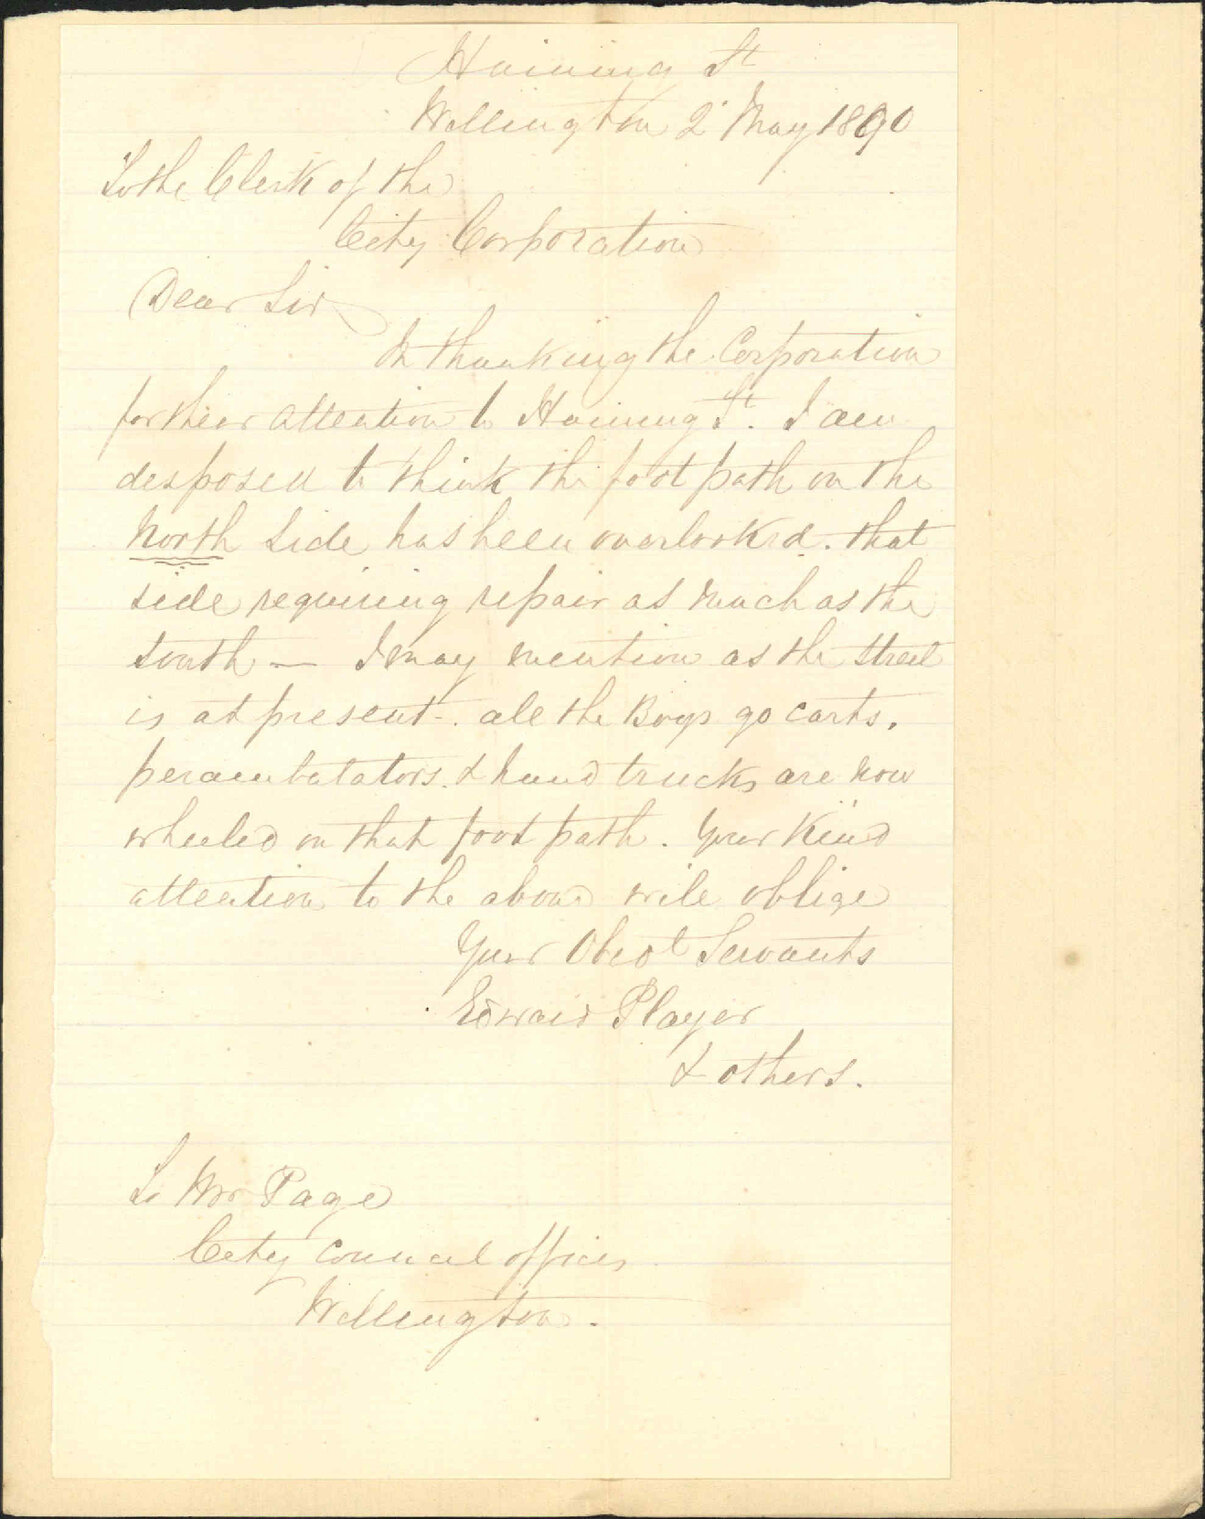 Haining St
Wellington 2 May 1890
To the Clerk of the
City Corporation
Dear Sir
In thanking the Corporation
for their attention to Haining St. I am
desposed to think the foot path on the
North Side has been overlooked. that
side requiring repair as much as the
South — I may mention as the Street
is at present -. all the Boys go carts,
perambulators. & hand trucks are now
wheeled on that foot path. Your Kind
attention to the above will oblige
Your Obedt Servants
Edward Player
& others.
To Mr Page
City Council offices
Wellington.